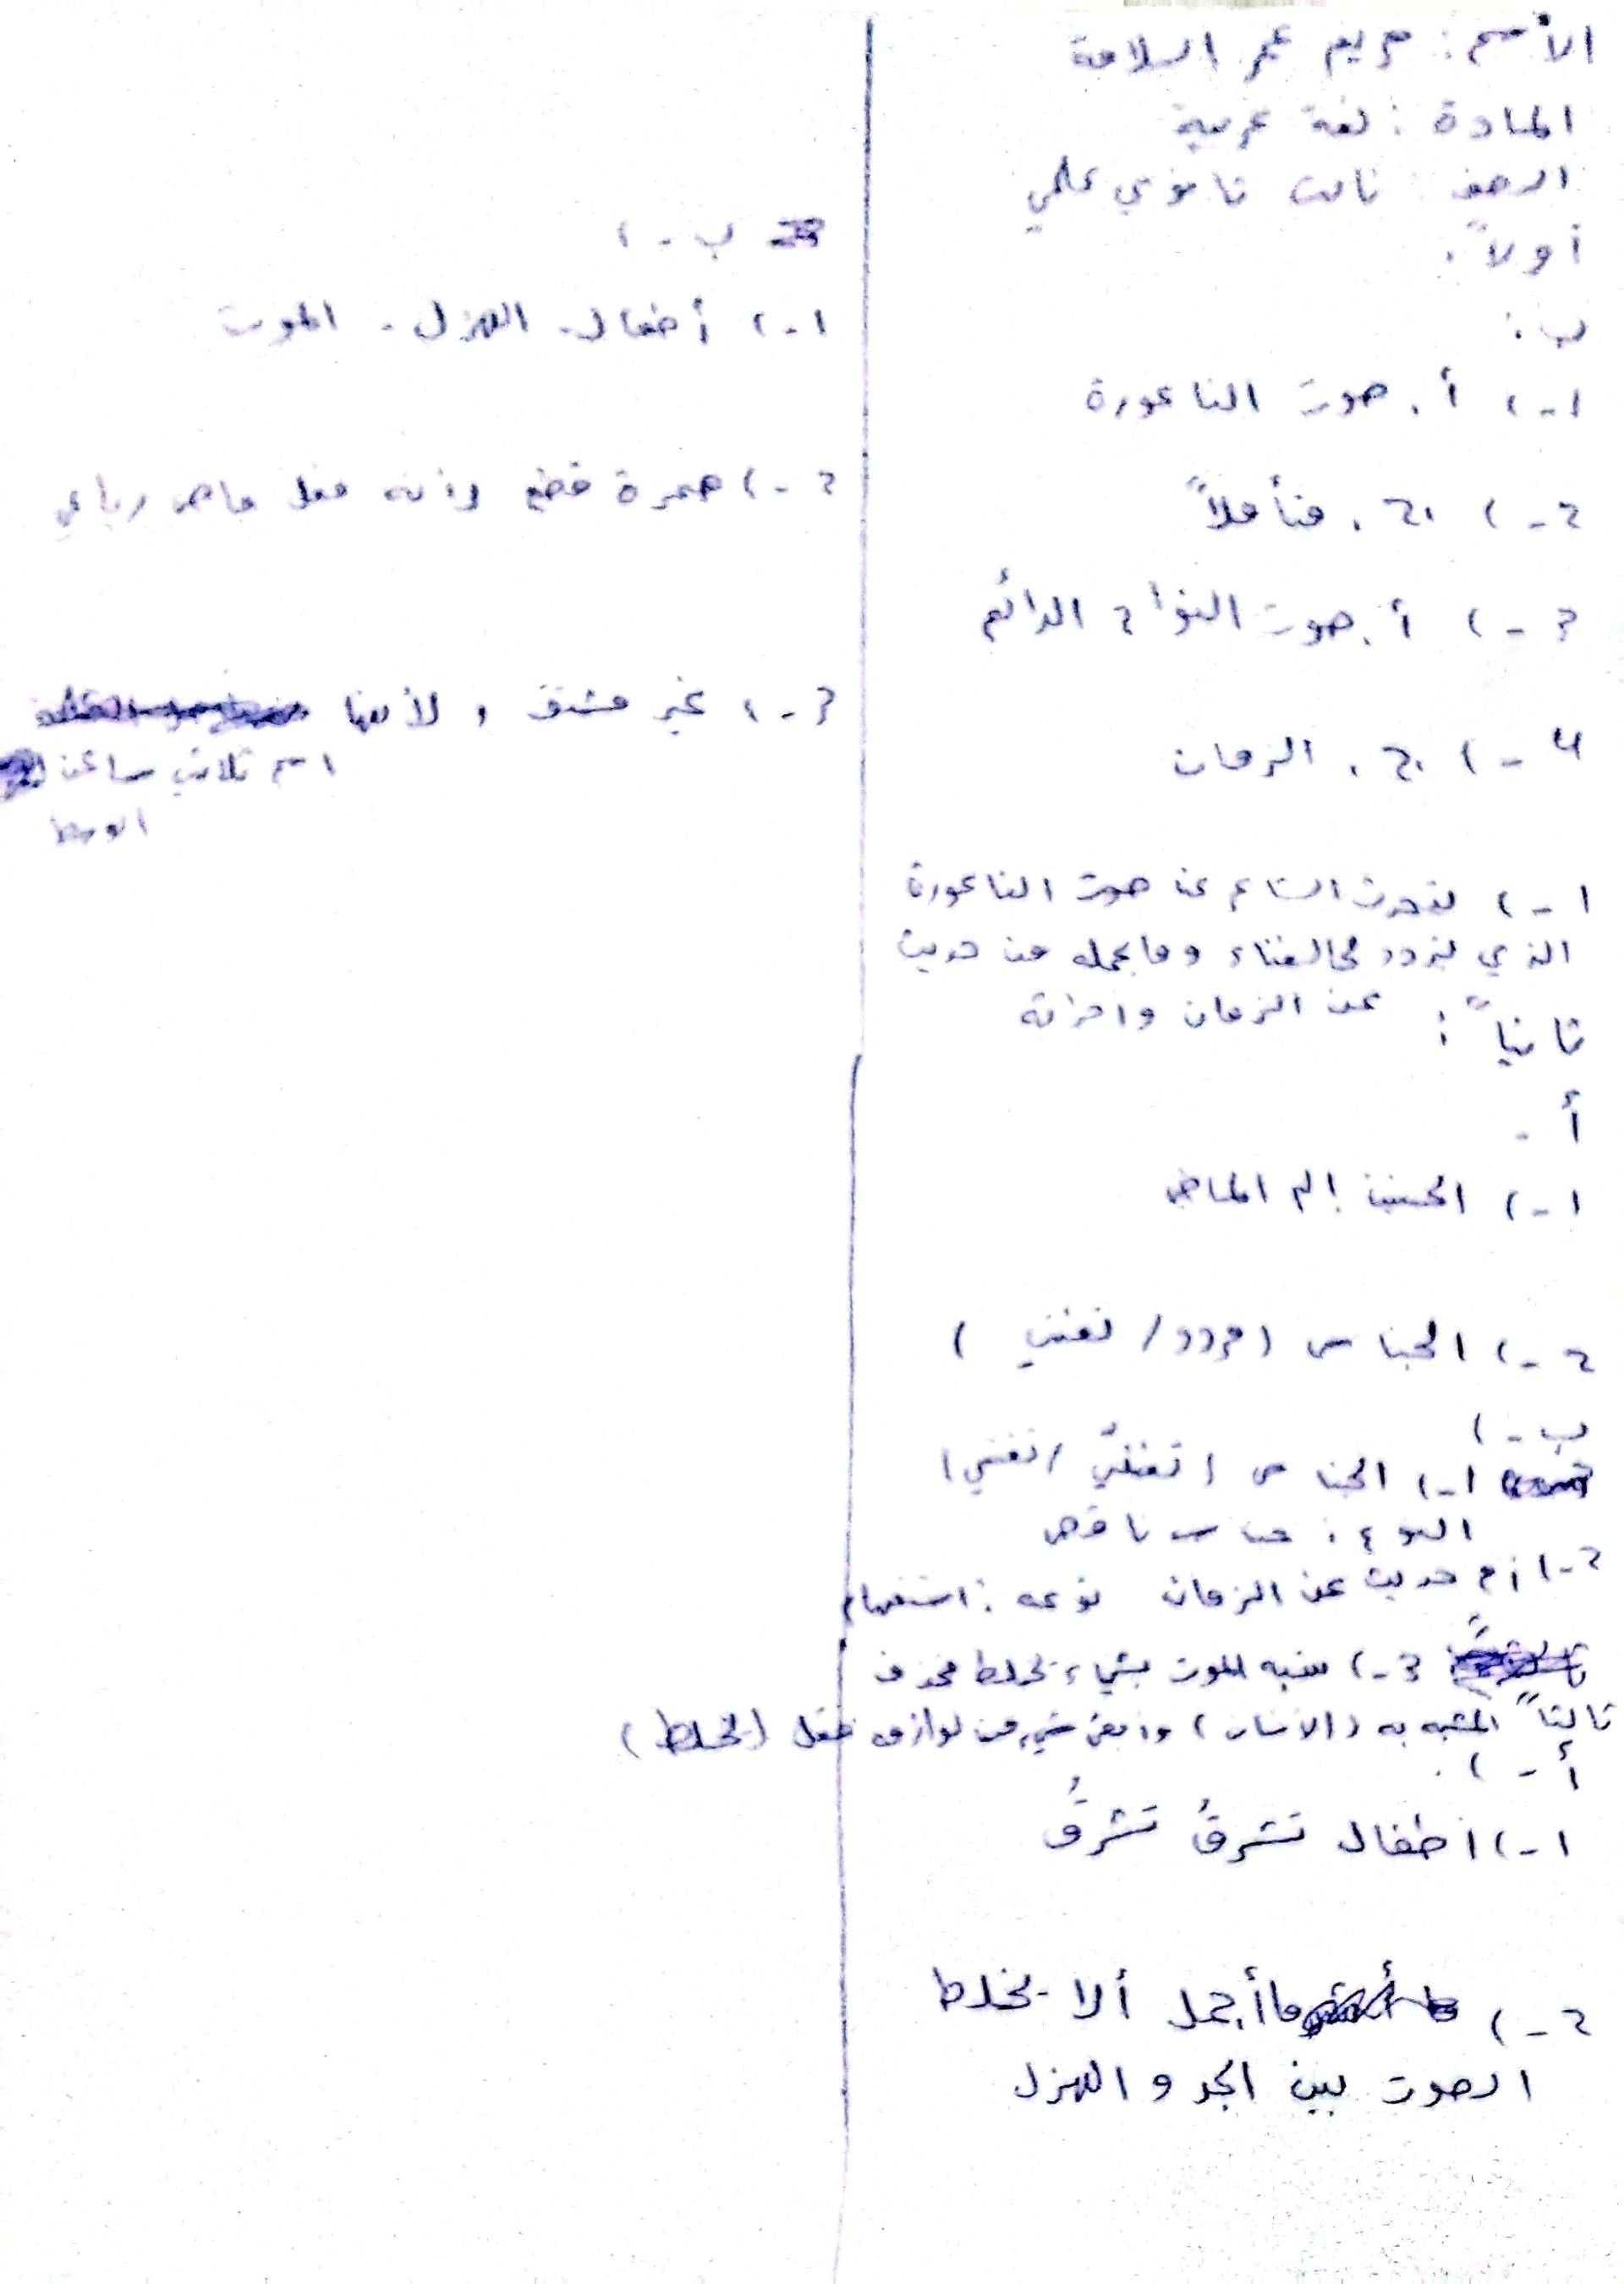 الأسم : مريم عمر السلامة
المادة : لغة عربية
الصف : ثالث ثانوي علمي
أولاً :
ب :
1-) أ. صوت الناعورة
2-) ج. متأملاً
3-) أ. صوت النواح الدائم
4-) ج. الزمان
1-) يتحدث الشاعر عن صوت الناعورة
الذي يردد الغناء وما يحمله من حديث
عن الزمان واحزانه
ثانياً :
أ -
1-) الحنين إلى الماضي
2-) الجناس (مردد / تغني)
ب-)
1-) الجناس (تغنيّ / تغني)
النوع : جناس ناقص
2-) أم حديث عن الزمان نوعه : استفهام
3-) شبه الموت بشيء يخلط محذف
المشبه به (الانسان) وابقى شيء من لوازمه فعل (الخلط)
ثالثاً
أ-)
1-) اطفال تشرقُ تشرقُ
2-) ما أجمل ألا يخلط
الموت بين الجد و الهزل
ب-)
1-) أطفال - الهزل - الموت
2-) همزة قطع لانه فعل ماضي رباعي
3-) غير مشتق ، لأنها
اسم ثلاثي ساكن
الوسط